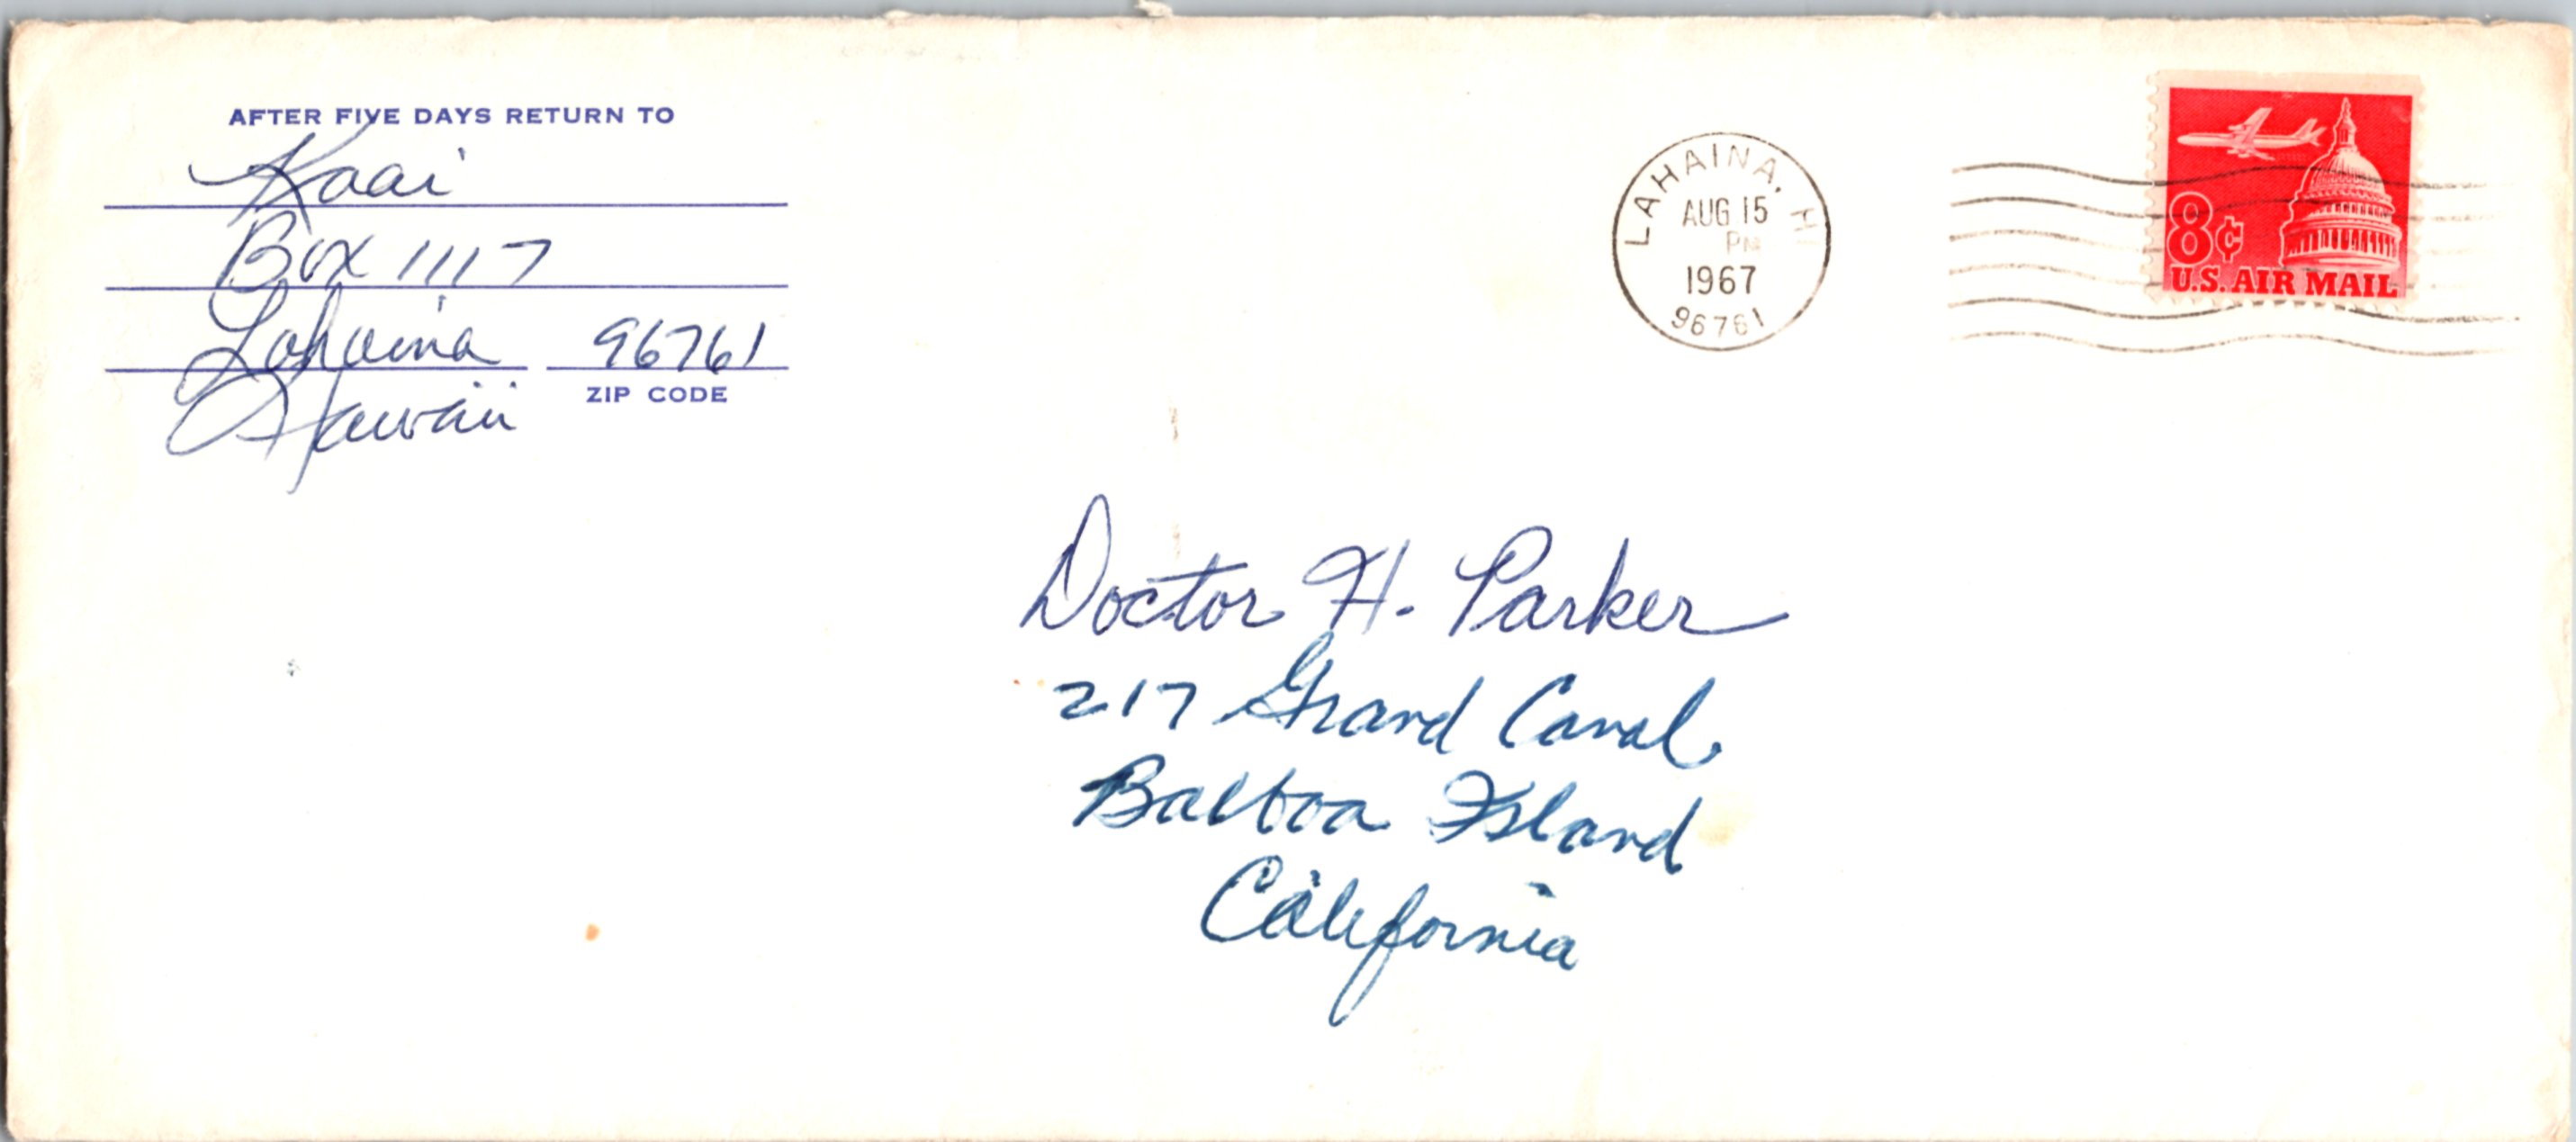 AFTER FIVE DAYS RETURN TO
Kaai
Box 1117
Lahaina 96761
ZIP CODE
Hawaii
LAHAINA, HI
AUG 15
PM
1967
96761
8¢
U.S. AIR MAIL
Doctor H. Parker
217 Grand Canal
Balboa Island
California